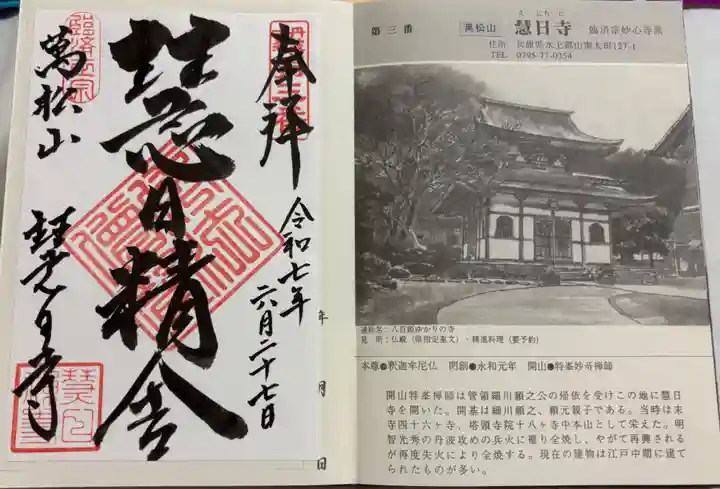 臨済正宗
萬松山
慧日精舎
慧日寺
奉拝
令和七年
六月二十七日
年
月
日
第三番
萬松山
えにちじ
慧日寺
臨済宗妙心寺派
住所 兵庫県氷上郡山南太田127-1
TEL 0795-77-0354
通称名:八百姫ゆかりの寺
見 所:仏殿(県指定重文)・精進料理(要予約)
本尊●釈迦牟尼仏 開創●永和元年 開山●特峯妙奇禅師
開山特峯禅師は管領細川頼之公の帰依を受けこの地に慧日
寺を開いた。開基は細川頼之、頼元親子である。当時は末
寺四十六ヶ寺、塔頭寺院十八ヶ寺中本山として栄えた。明
智光秀の丹波攻めの兵火に罹り全焼し、やがて再興される
が再度失火により全焼する。現在の建物は江戸中期に建て
られたものが多い。